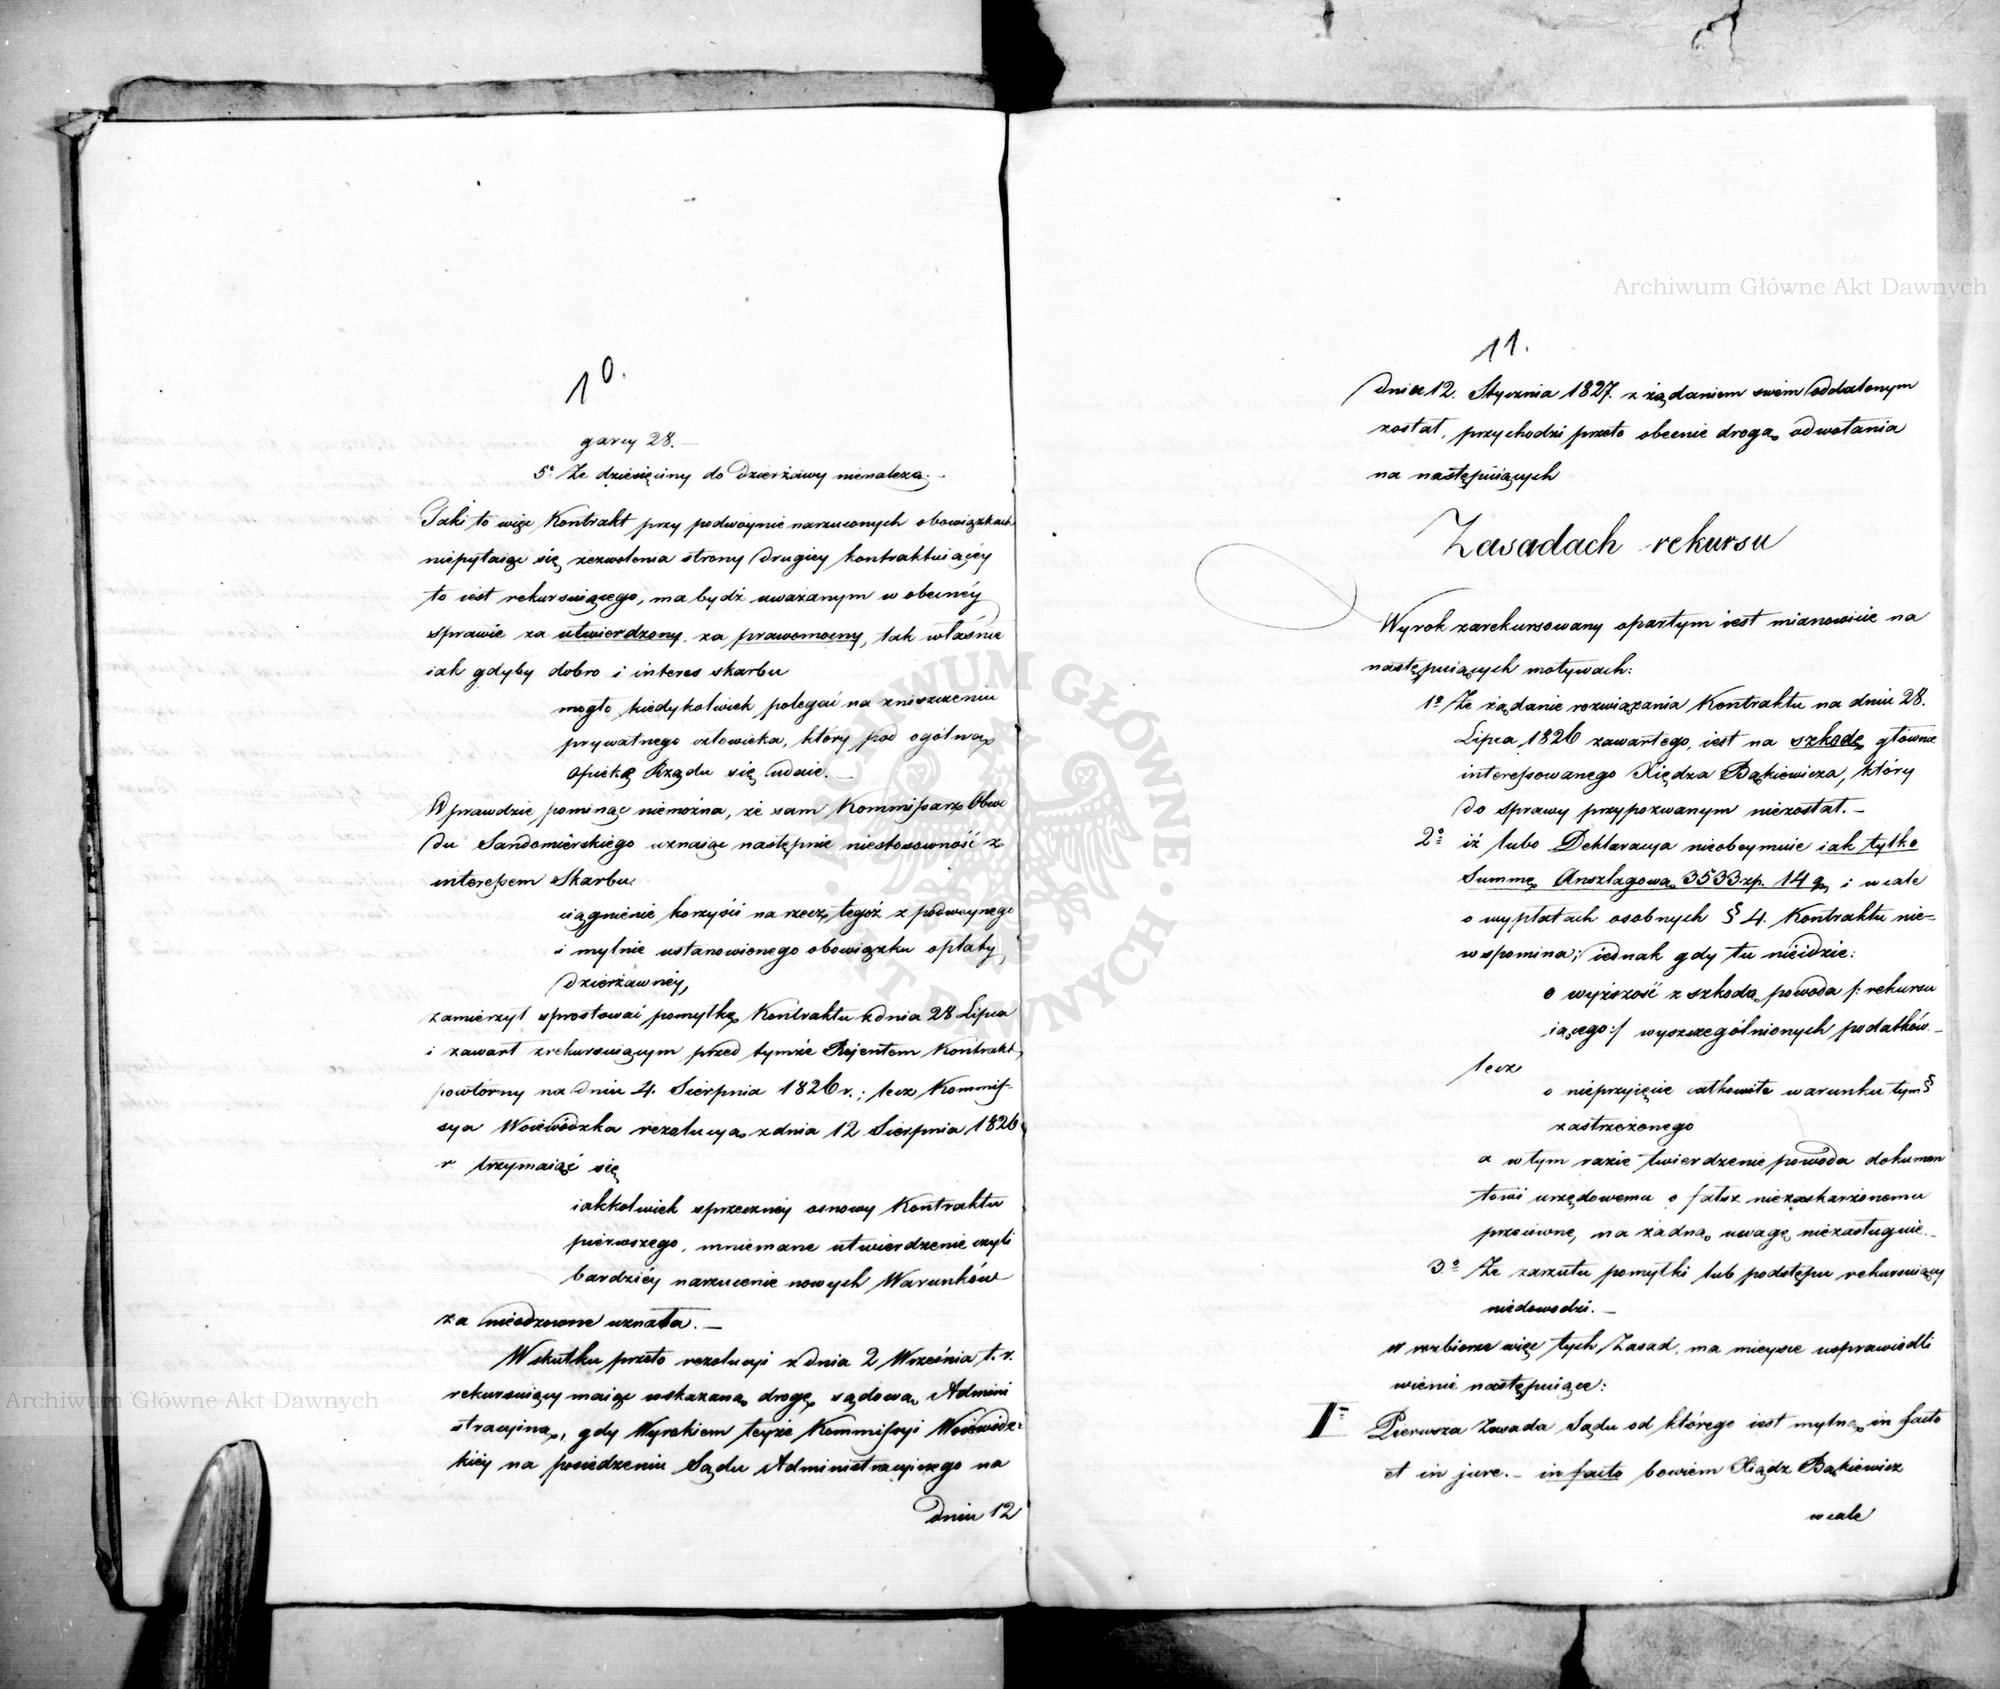 10.
garcy 28. —
5º Że dziesięciny do Dzierżawy nienależą. —
Taki to więc Kontrakt przy podwóynie narzuconych obowiązkach
niepytaiąc się zezwolenia strony drugiey kontraktuiącéy
to iest rekursuiącego, ma bydź uważanym w obecnéy
sprawie za utwierdzony, za prawomocny, tak właśnie
iak gdyby dobro i interes skarbu
mogło kiedykolwiek polegać na zniszczeniu
prywatnego człowieka, który pod ogólną
opiekę Rządu się udaie. —
Wprawdzie pominąć niemożna, że sam Kommissarz Obwo
du Sandomierskiego uznaiąc następnie niestosowność z
interessem Skarbu
ciągnienie korzyści na rzecz tegoż z podwóynego
i mylnie ustanowionego obowiązku opłaty
dzierżawnéy,
zamierzył sprostować pomyłkę Kontraktu z dnia 28 Lipca
i zawarł z rekursuiącym przed tymże Rejentem Kontrakt
powtórny na dniu 4. Sierpnia 1826 r.; lecz Kommis-
sya Woiewódzka rezolucyą z dnia 12 Sierpnia 1826
r. trzymaiąc się
iakkolwiek sprzecznéy osnowy Kontraktu
pierwszego, mniemane utwierdzenie czyli
bardziéy narzucenie nowych Warunków
za nieodzowne uznała. —
W skutku przeto rezolucyi z dnia 2 Września t. r.
rekursuiący maiąc wskazaną drogę sądową Admini
stracyiną, gdy Wyrokiem teyże Kommissyi Woiewódz-
kiéy na posiedzeniu Sądu Administracyinego na
dniu 12
11.
dnia 12. Stycznia 1827. z żądaniem swém oddalonym
został, przychodzi przeto obecnie drogą odwołania
na następuiących
Zasadach rekursu
Wyrok zarekursowany opartym iest mianowicie na
następuiących motywach:
1º Że żądanie rozwiązania Kontraktu na dniu 28.
Lipca 1826 zawartego, iest na szkodę głównie
interessowanego Xiędza Bąkiewicza, który
do sprawy przypozwanym niezostał. —
2º iż lubo Deklaracya nieobeymuie iak tylko
Summę Anszlagową 3533 zp. 14 g. i wcale
o wypłatach osobnych § 4. Kontraktu nie-
wspomina; iednak gdy tu nieidzie:
o wyższość z szkodą powoda /: rekursu
iącego :/ wyszczególnionych podatków. —
lecz
o nieprzyięcie całkowite warunku tym §
zastrzeżonego
a w tym razie twierdzenie powoda dokumen
towi urzędowemu o fałsz niezaskarżonemu
przeciwne, na żadną uwagę niezasługuie. —
3º Że zarzutu pomyłki lub podstępu rekursuiący
niedowodzi. —
W rozbiorze więc tych Zasad, ma mieysce usprawiedli
wienie następuiące:
I Pierwsza Zasada Sądu od którego iest mylną in facto
et in jure. — in facto bowiem Xiądz Bąkiewicz
wcale
Archiwum Główne Akt Dawnych
Archiwum Główne Akt Dawnych
ARCHIWUM GŁÓWNE AKT DAWNYCH